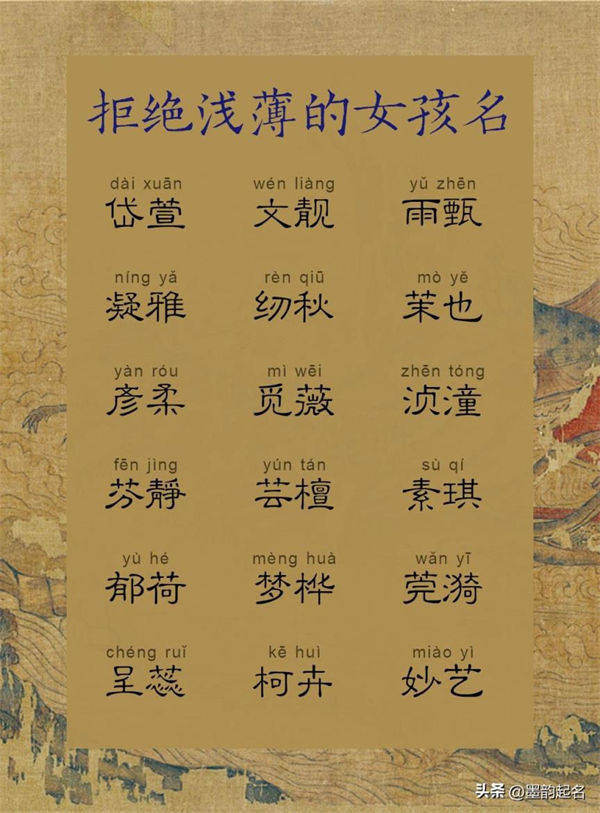 拒绝浅薄的女孩名
dài xuān wén liàng yǔ zhēn
岱萱 文靓 雨甄
níng yǎ rèn qiū mò yě
凝雅 纫秋 茉也
yàn róu mì wēi zhēn tóng
彦柔 觅薇 浈潼
fēn jìng yún tán sù qí
芬靜 芸檀 素琪
yù hé mèng huà wǎn yī
郁荷 梦桦 莞漪
chéng ruǐ kē huì miào yì
呈蕊 柯卉 妙艺
头条 @墨韵起名